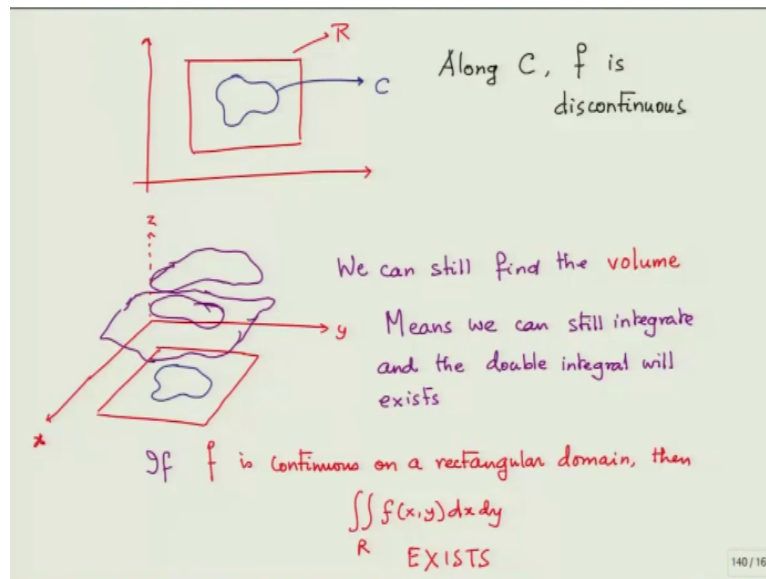 R
C
Along C, f is
discontinuous
z
We can still find the volume
y
Means we can still integrate
and the double integral will
exists
x
If f is continuous on a rectangular domain, then
∬ f(x,y) dx dy
R
EXISTS
140 / 16